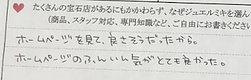 たくさんの宝石店があるにもかかわらず、なぜジュエルミキを選ん
(商品、スタッフ対応、専門知識など、ご自由にお書きくださ
ホームページを見て、良さそうだったから。
ホームページのふんいん気がとても良かった。